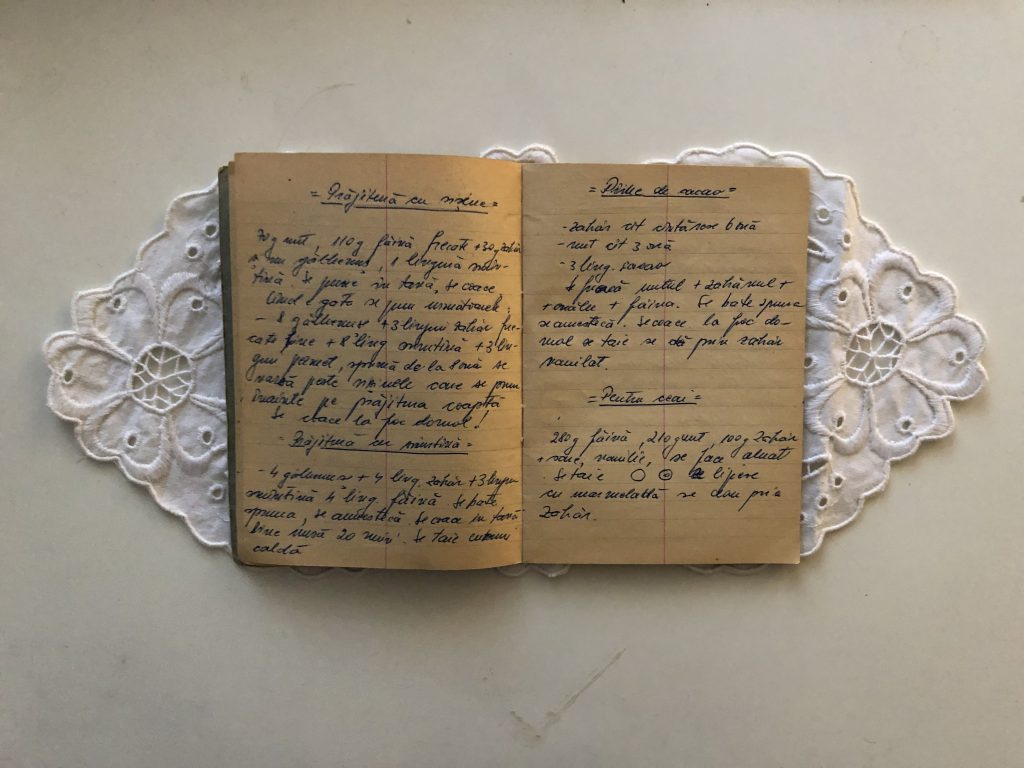 = Prăjitură cu vișine =
70g unt, 110g făină frecate +30g zahăr
un gălbenuș, 1 lingură smîn-
tînă. Se pune în tavă, se coace
Cînd e gata se pun următoarele:
- 8 gălbenușe +3 linguri zahăr fre-
cate bine + 8 ling smîntînă +3 lin-
guri pesmet, spumă de la 8 ouă se
varsă peste vișinele care se pun
înainte pe prăjitura coaptă
Se coace la foc domol!
= Prăjitură cu smîntînă =
- 4 gălbenușe + 4 ling. zahăr +3 linguri
smîntînă 4 ling făină. Se bate
spuma, se amestecă. Se coace în tavă
bine unsă 20 min. Se taie
caldă
= de cacao =
- zahăr cît cîntăresc 6 ouă
- unt cît 3 ouă
- 3 ling. cacao
Se freacă untul + zahărul +
+ ouăle + făina. Se bate spuma
se amestecă. Se coace la foc do-
mol se taie se dă prin zahăr
vanilat.
= Pentru ceai =
280g făină, 210g unt, 100g zahăr
+ sare, vanilie, se face aluat
Se taie se lipesc
cu marmelată se dau prin
zahăr.